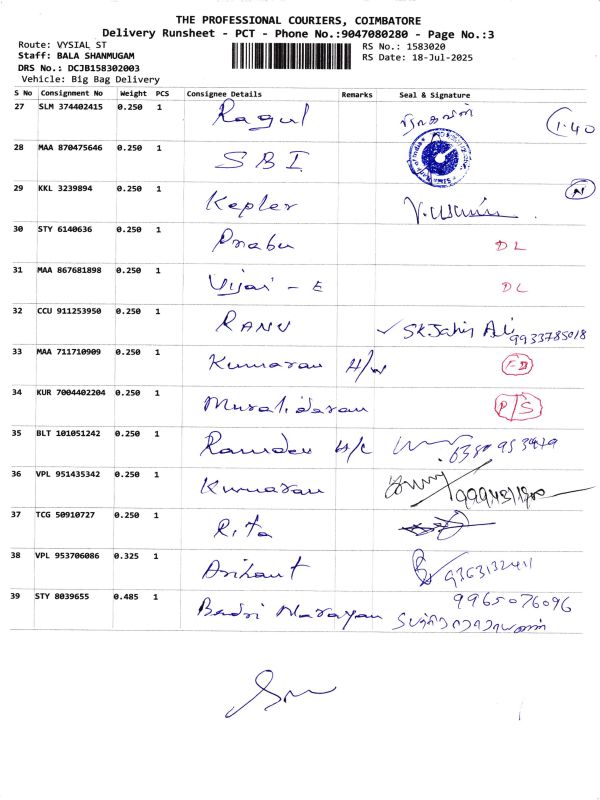 THE PROFESSIONAL COURIERS, COIMBATORE
Delivery Runsheet - PCT - Phone No.:9047080280 - Page No.:3
Route: VYSIAL ST
RS No.: 1583020
Staff: BALA SHANMUGAM
RS Date: 18-Jul-2025
DRS No.: DCJB158302003
Vehicle: Big Bag Delivery
S No Consignment No Weight PCS Consignee Details Remarks Seal & Signature
27 SLM 374402415 0.250 1 Ragul 1.40
28 MAA 870475646 0.250 1 SBI
29 KKL 3239894 0.250 1 Kepler N
30 STY 6140636 0.250 1 Prabu DL
31 MAA 867681898 0.250 1 Vijai - E DL
32 CCU 911253950 0.250 1 RANU SK Jahir Ali 9933785018
33 MAA 711710909 0.250 1 Kumaran H/W
34 KUR 7004402204 0.250 1 Muralidaran P/S
35 BLT 101051242 0.250 1 Ramdev
36 VPL 951435342 0.250 1 Kumaran
37 TCG 50910727 0.250 1 Rita
38 VPL 953706086 0.325 1 Arihant 9363132411
39 STY 8039655 0.485 1 Badri Narayan 9965076096